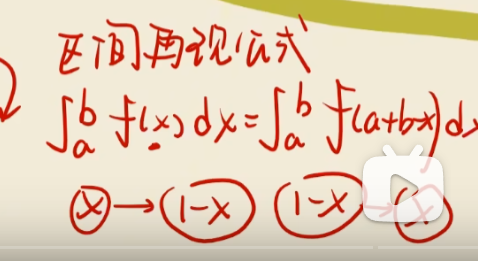 区间再现公式
∫ₐᵇ f(x) dx = ∫ₐᵇ f(a+b-x) dx
x → 1-x 1-x → x